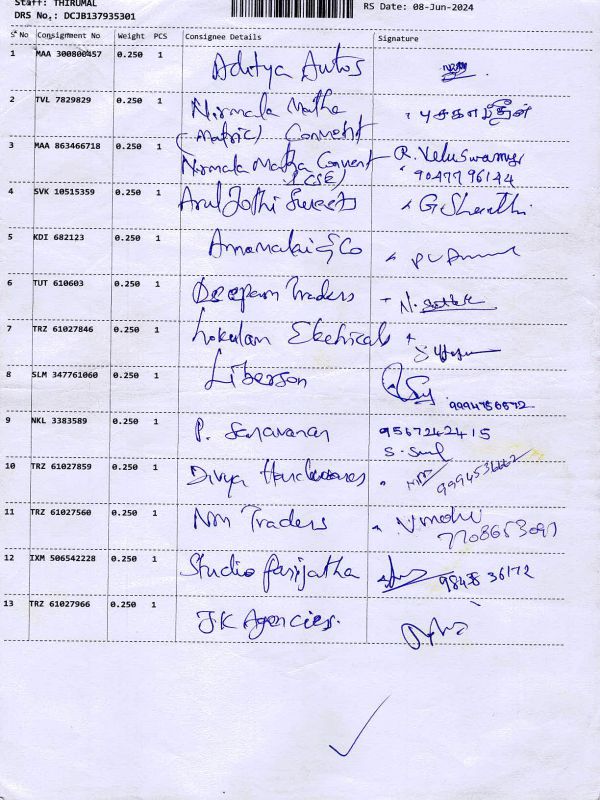 Staff: THIRUMAL
DRS No.: DCJB137935301
RS Date: 08-Jun-2024
S No Consignment No Weight PCS Consignee Details Signature
1 MAA 300800457 0.250 1 Aditya Autos
2 TVL 7829829 0.250 1 Nirmala Matha
(Matric) Convent
3 MAA 863466718 0.250 1 Nirmala Matha Convent R. Veluswamy
(CSE) 9047796144
4 SVK 10515359 0.250 1 Arul Jothi Sweets G Sharathi
5 KDI 682123 0.250 1 Annamalai & Co
6 TUT 610603 0.250 1 Deepam Traders N.
7 TRZ 61027846 0.250 1 Lokulam Electricals
8 SLM 347761060 0.250 1 Liberson
9 NKL 3383589 0.250 1 P. Saravanan 9567242415
10 TRZ 61027859 0.250 1 Divya Hardwares 9994536662
11 TRZ 61027560 0.250 1 NM Traders
7708653097
12 IXM 506542228 0.250 1 Studio Parijatha
13 TRZ 61027966 0.250 1 J.K Agencies.